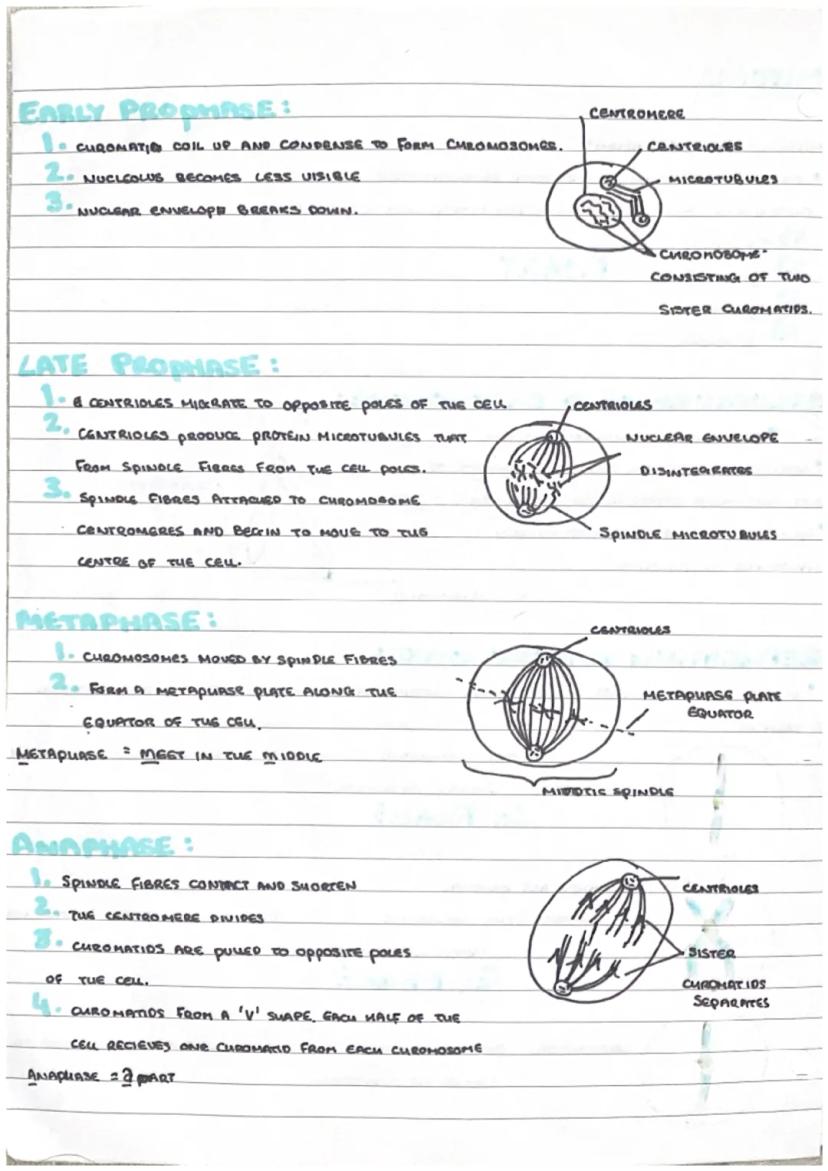 EARLY PROPHASE:
CENTROMERE
1. CHROMATIN COIL UP AND CONDENSE TO FORM CHROMOSOMES.
CENTRIOLES
2. NUCLEOLUS BECOMES LESS VISIBLE
MICROTUBULES
3. NUCLEAR ENVELOPE BREAKS DOWN.
CHROMOSOME
CONSISTING OF TWO
SISTER CHROMATIDS.
LATE PROPHASE:
1. CENTRIOLES MIGRATE TO OPPOSITE POLES OF THE CELL
CENTRIOLES
2. CENTRIOLES PRODUCE PROTEIN MICROTUBULES THAT
NUCLEAR ENVELOPE
FROM SPINDLE FIBRES FROM THE CELL POLES.
DISINTEGRATES
3. SPINDLE FIBRES ATTACHED TO CHROMOSOME
CENTROMERES AND BEGIN TO MOVE TO THE
SPINDLE MICROTUBULES
CENTRE OF THE CELL.
METAPHASE:
CENTRIOLES
1. CHROMOSOMES MOVED BY SPINDLE FIBRES
2. FORM A METAPHASE PLATE ALONG THE
METAPHASE PLATE
EQUATOR OF THE CELL.
EQUATOR
METAPHASE = MEET IN THE MIDDLE
MITOTIC SPINDLE
ANAPHASE:
1. SPINDLE FIBRES CONTRACT AND SHORTEN
CENTRIOLES
2. THE CENTROMERE DIVIDES
3. CHROMATIDS ARE PULLED TO OPPOSITE POLES
SISTER
OF THE CELL.
CHROMATIDS
SEPARATES
4. CHROMATIDS FROM A 'V' SHAPE. EACH HALF OF THE
CELL RECIEVES ONE CHROMATID FROM EACH CHROMOSOME
ANAPHASE = apART